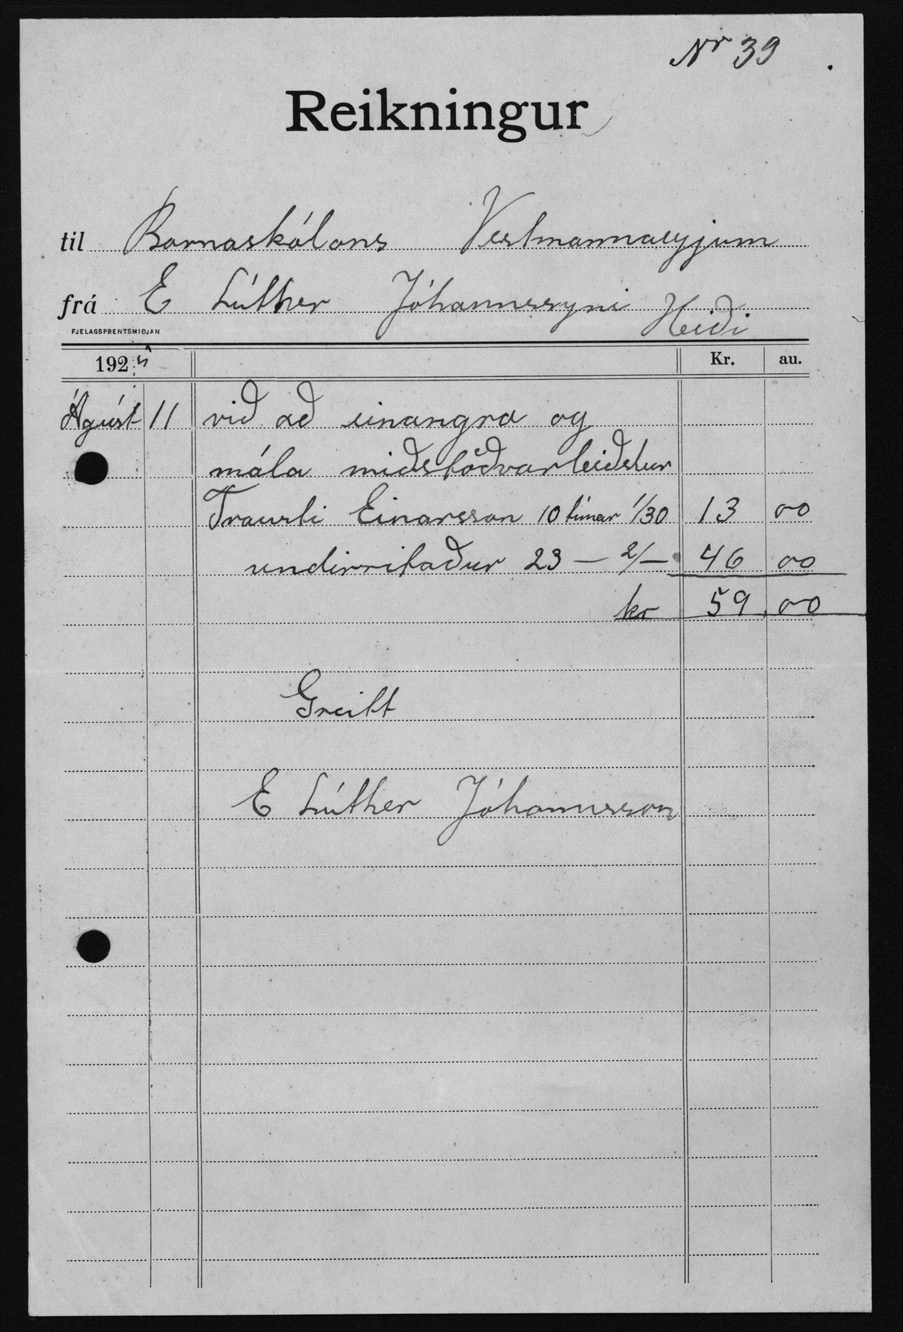 Nr 39
Reikningur
til Barnaskólans Vestmannaeyjum
frá E Lúther Jóhannssyni Heiði
FJELAGSPRENTSMIÐJAN
1925 Kr. au.
Ágúst 11 við að einangra og
mála miðstöðvarleiðslur
Trausti Einarsson 10 tímar 1/30 13 00
undirritaður 23 — 2/— 46 00
kr 59.00
Greitt
E Lúther Jóhannsson